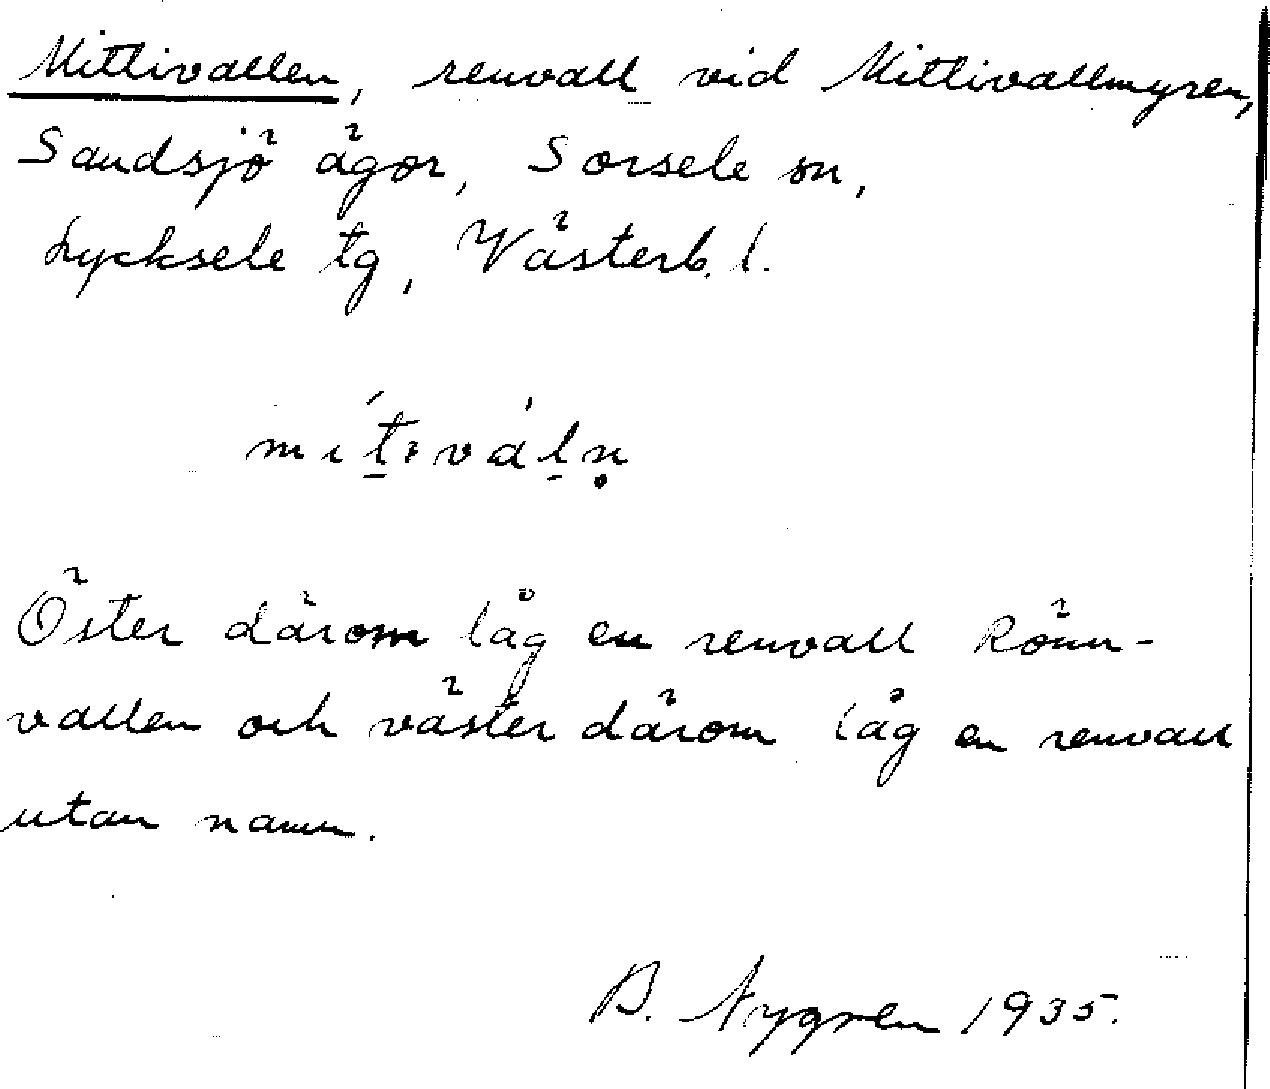 Mittlivallen, renvall vid Mittlivallmyren,
Sandsjö ägor, Sorsele sn,
Lycksele tg, Västerb. l.
Öster därom låg en renvall Rönn-
vallen och väster därom låg en renvall
utan namn.
B. Nygren 1935.